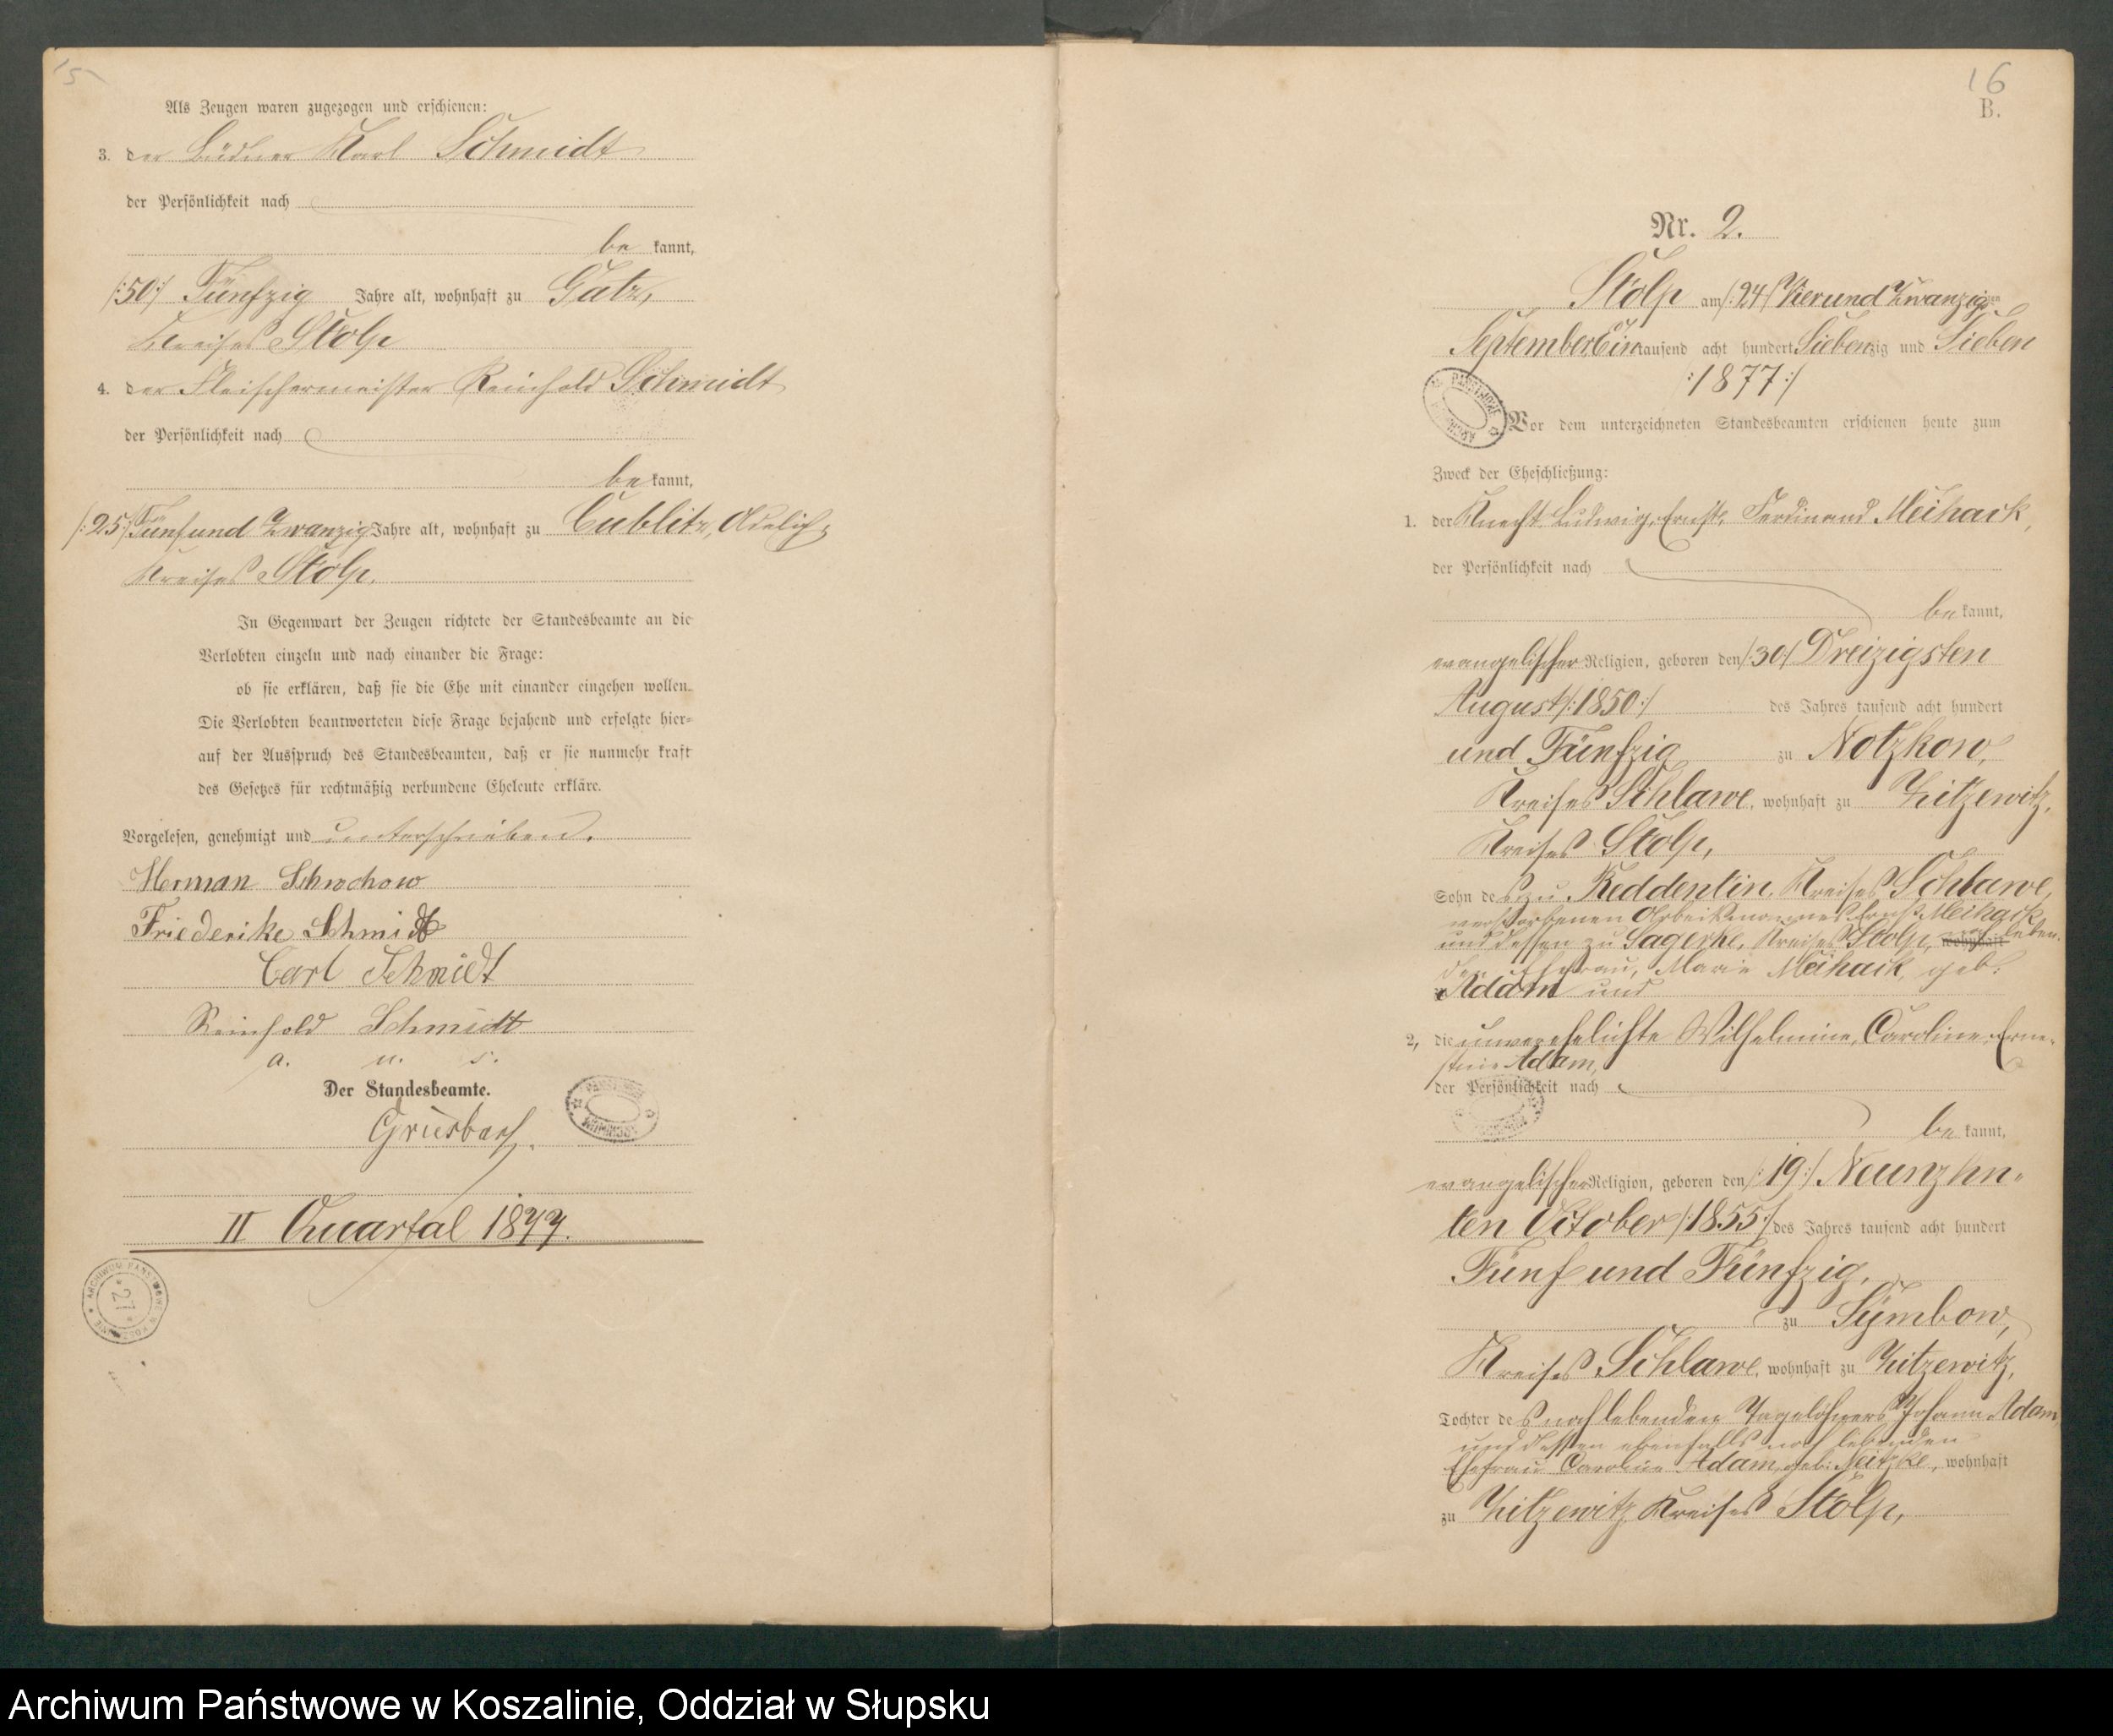 15
Als Zeugen waren zugezogen und erschienen:
3. der Büdner Karl Schmidt
der Persönlichkeit nach
be kannt,
/:50:/ Fünfzig Jahre alt, wohnhaft zu Gatz,
Kreises Stolp
4. der Fleischermeister Reinhold Schmidt
der Persönlichkeit nach
be kannt,
/:25:/ Fünfund Zwanzig Jahre alt, wohnhaft zu Cublitz, Adelich,
Kreises Stolp.
In Gegenwart der Zeugen richtete der Standesbeamte an die
Verlobten einzeln und nach einander die Frage:
ob sie erklären, daß sie die Ehe mit einander eingehen wollen.
Die Verlobten beantworteten diese Frage bejahend und erfolgte hier=
auf der Ausspruch des Standesbeamten, daß er sie nunmehr kraft
des Gesetzes für rechtmäßig verbundene Eheleute erkläre.
Vorgelesen, genehmigt und unterschrieben.
Herman Schwochow
Friederike Schmidt
Carl Schmidt
Reinhold Schmidt
a. u. s.
Der Standesbeamte.
II Quartal 1877.
ARCHIWUM PAŃSTWOWE W KOSZALINIE
* 27 *
16
B.
Nr. 2.
Stolp am /:24:/ Vierund Zwanzigsten
September Ein tausend acht hundert Siebenzig und Sieben
/:1877:/
Vor dem unterzeichneten Standesbeamten erschienen heute zum
Zweck der Eheschließung:
1. der Knecht Ludwig, Ernst, Ferdinand Meihack,
der Persönlichkeit nach
be kannt,
evangelischer Religion, geboren den /:30:/ Dreizigsten
August /:1850:/ des Jahres tausend acht hundert
und Fünfzig zu Notzkow,
Kreises Schlawe, wohnhaft zu Zitzewitz,
Kreises Stolp,
Sohn des zu Reddentin, Kreises Schlawe,
verstorbenen Arbeitsmannes Ernst Meihack,
und dessen zu Sagerke, Kreises Stolp, wohnhaft noch leben-
den Ehefrau, Marie Meihack, geb.
Adam und
2, die unverehelichte Wilhelmine, Caroline, Erne-
stine Adam,
der Persönlichkeit nach
be kannt,
evangelischer Religion, geboren den /:19:/ Neunzhn-
ten October /:1855:/ des Jahres tausend acht hundert
Fünf und Fünfzig,
zu Symbow,
Kreises Schlawe, wohnhaft zu Zitzewitz,
Tochter des noch lebenden Tagelöhners Johann Adam
und dessen ebenfalls noch lebenden
Ehefrau Caroline Adam, geb. Neitzke, wohnhaft
zu Zitzewitz Kreises Stolp,
Archiwum Państwowe w Koszalinie, Oddział w Słupsku